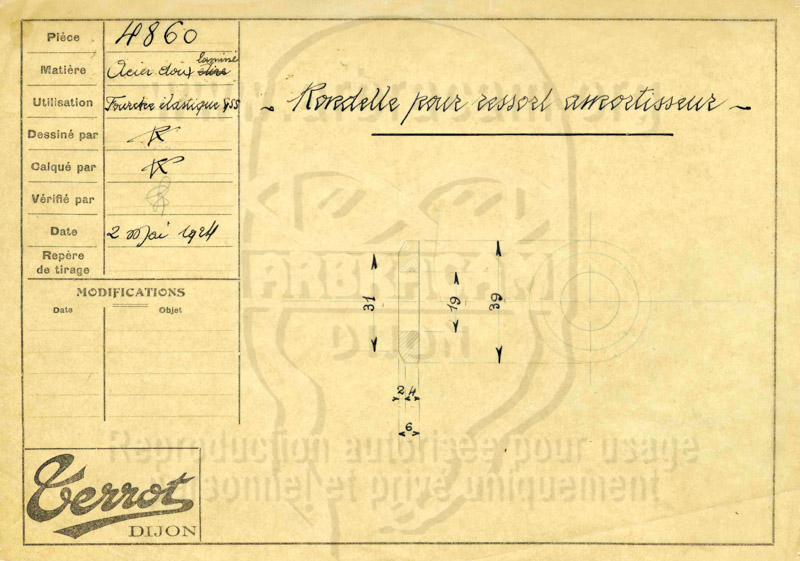 Pièce 4860
Matière Acier doux laminé
Utilisation Fourche élastique
Dessiné par R
Calqué par R
Vérifié par
Date 2 Mai 1924
Repère
de tirage
MODIFICATIONS
Date Objet
~ Rondelle pour ressort amortisseur ~
31
19
39
2 4
6
ARBRACAM
DIJON
Reproduction autorisée pour usage
sonnel et privé uniquement
Terrot
DIJON